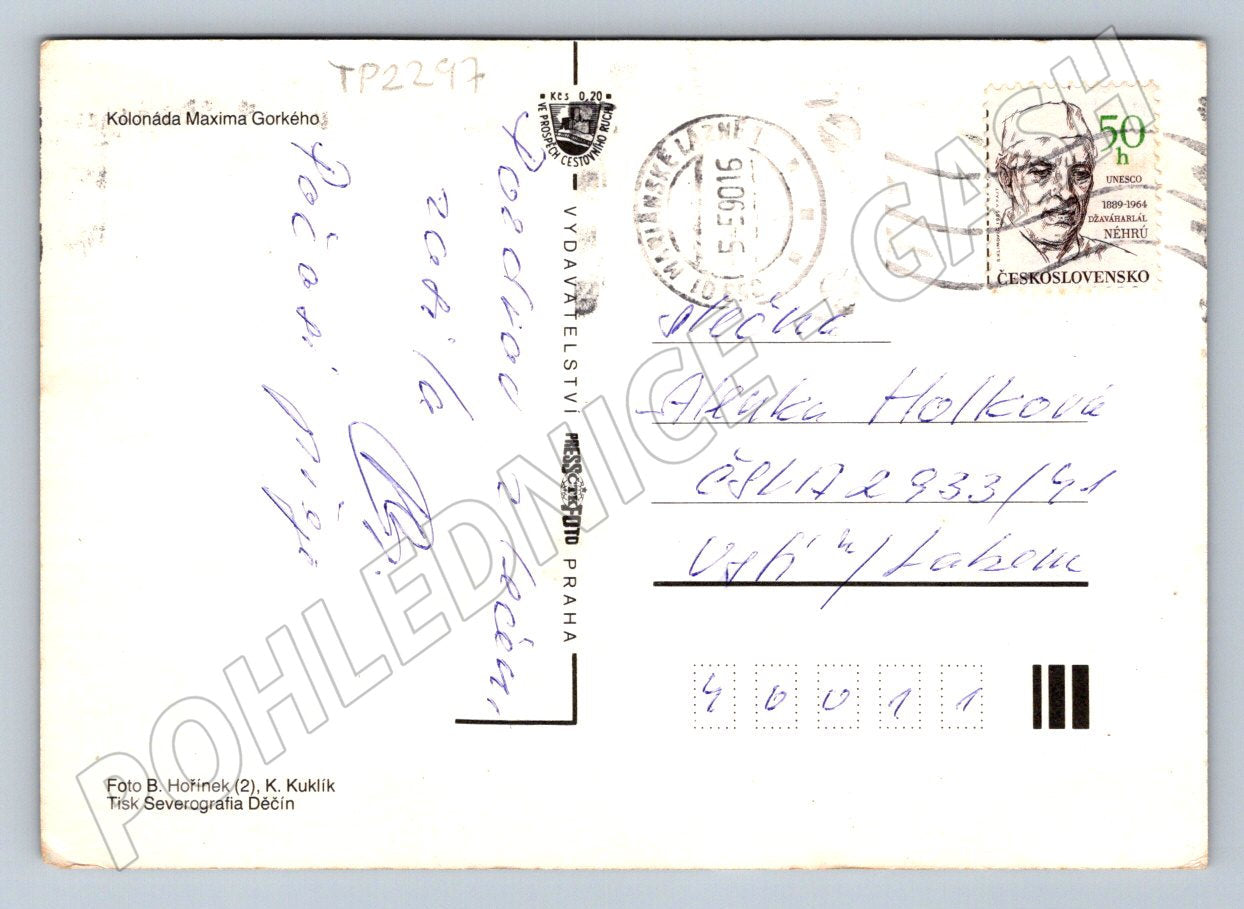 TP2297
Kolonáda Maxima Gorkého
Kčs 0,20
VE PROSPĚCH CESTOVNÍHO RUCHU
Pozdrav z lázní
Počasí přeje
VYDAVATELSTVÍ PRESSFOTO PRAHA
ČTK
MARIÁNSKÉ LÁZNĚ 1
5-5 90 16
50
h
UNESCO
1889-1964
DŽAVÁHARLÁL
NÉHRÚ
ČESKOSLOVENSKO
slečna
Alenka Holková
ČSLA 2933/41
Ústí n/Labem
40011
Foto B. Hořínek (2), K. Kuklík
Tisk Severografia Děčín
POHLEDNICE - GASH